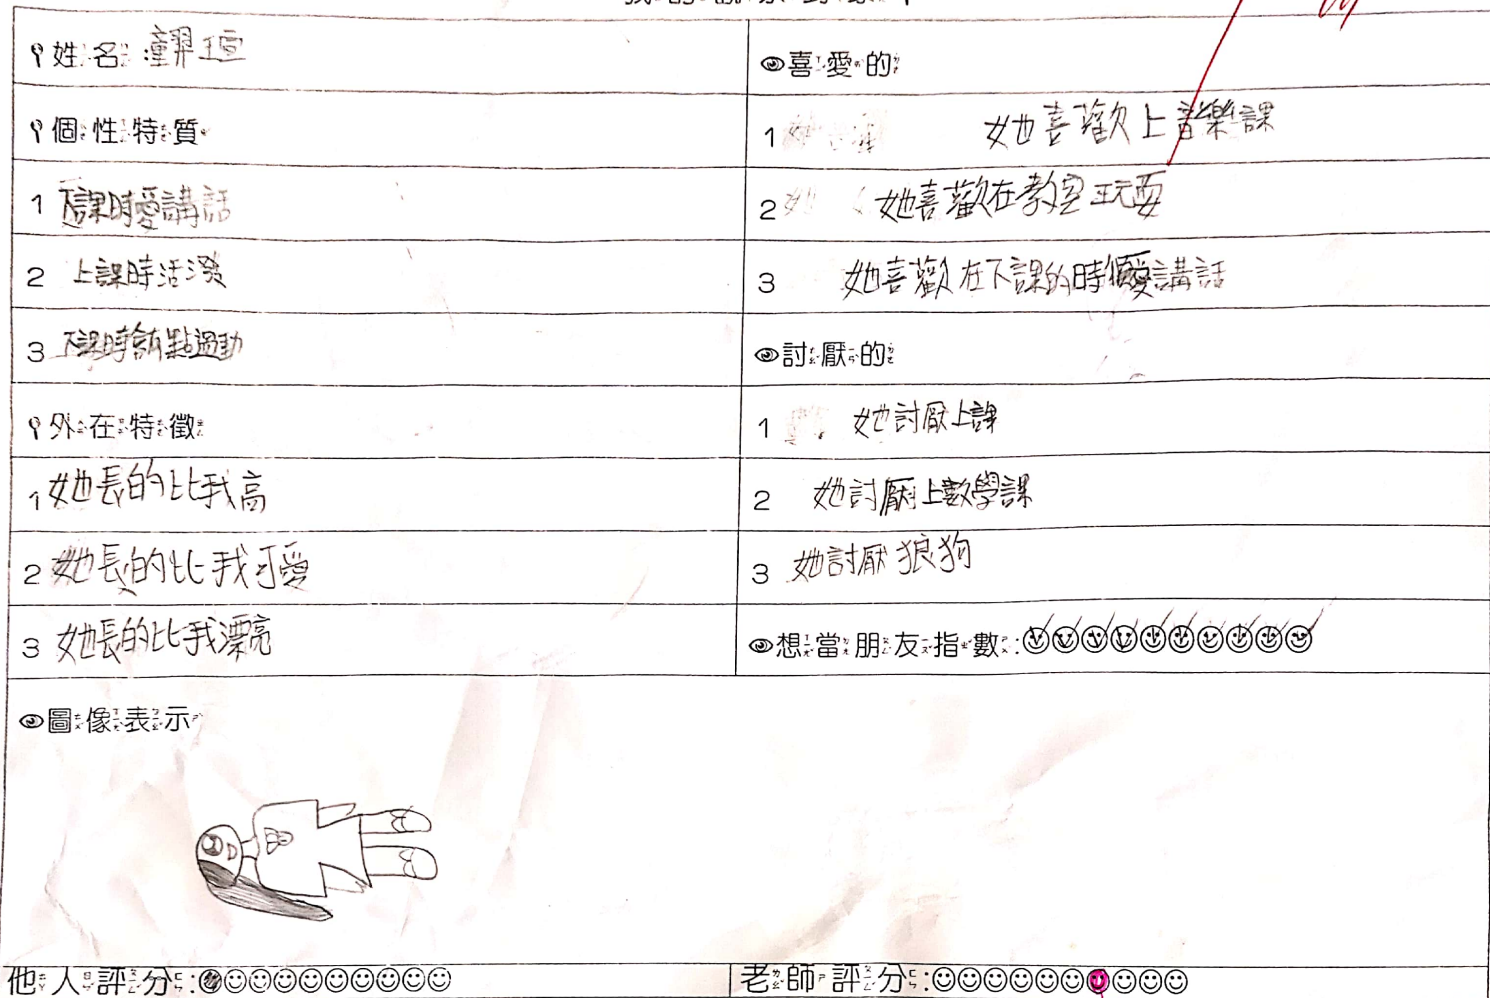 姓名:童羿瑄
個性特質
1 下課時愛講話
2 上課時活潑
3 下課時會有點過動
外在特徵
1 她長的比我高
2 她長的比我可愛
3 她長的比我漂亮
喜愛的
1 她喜歡上音樂課
2 她喜歡在教室玩耍
3 她喜歡在下課的時候愛講話
討厭的
1 她討厭上課
2 她討厭上數學課
3 她討厭狼狗
想當朋友指數:
圖像表示
他人評分:
老師評分: